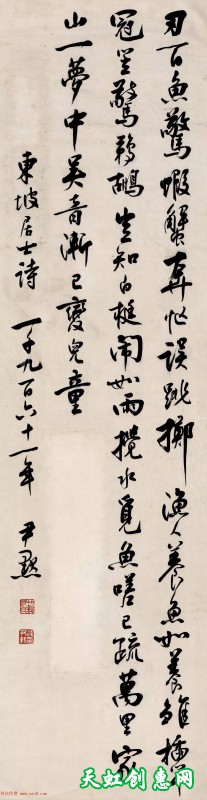 刃百魚驚蝦蟹奔忙誤跳擲漁人養魚如養雛插竿
冠笠驚鵜鶘豈知白梃鬧如雨攪水覓魚嗟已疏萬里家
山一夢中吳音漸已變兒童
東坡居士詩 一千九百六十一年 尹默
天虹创惠网